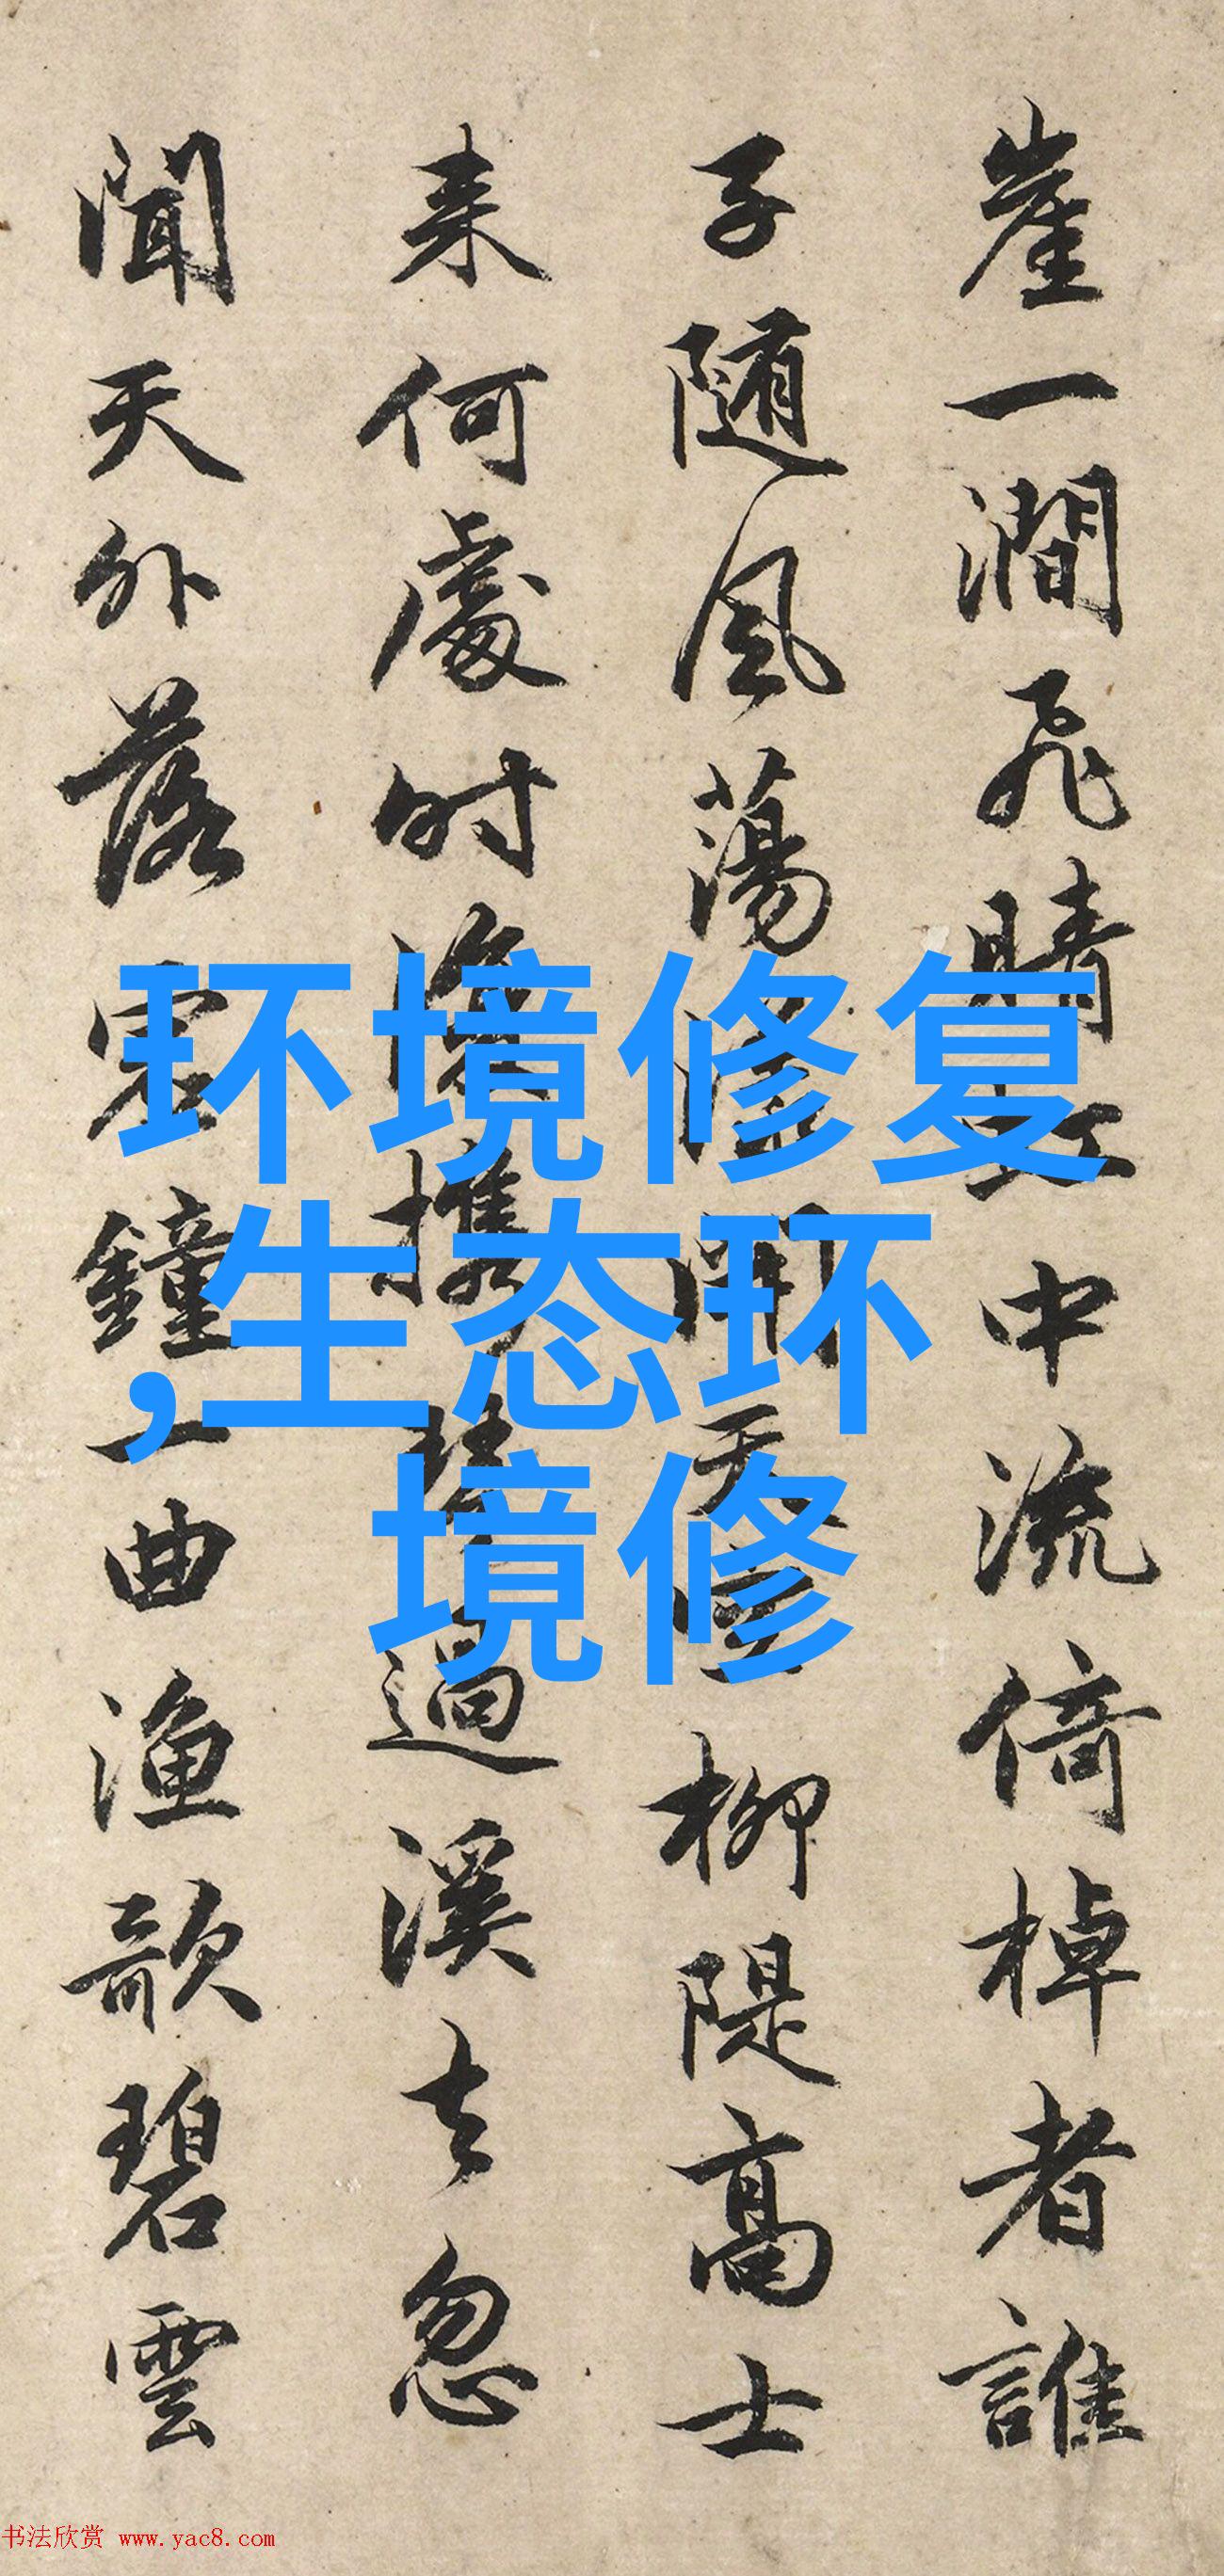 崖一澗飛晴虹中流倚棹者誰
子随風蕩開柳隄高士
来何處时復攜琴過溪去忽
聞天外落寒鐘一曲漁歌碧雲
环境修复
,生态环
境修
书法欣赏 www.yac8.com